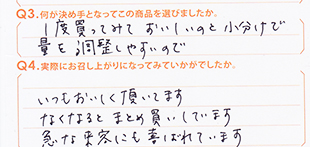 Q3.何が決め手となってこの商品を選びましたか。
1度買ってみて おいしいのと 小分けで
量を調整しやすいので
Q4.実際にお召し上がりになってみていかがでしたか。
いつもおいしく頂いてます
なくなると まとめ買いしています
急な来客にも喜ばれています